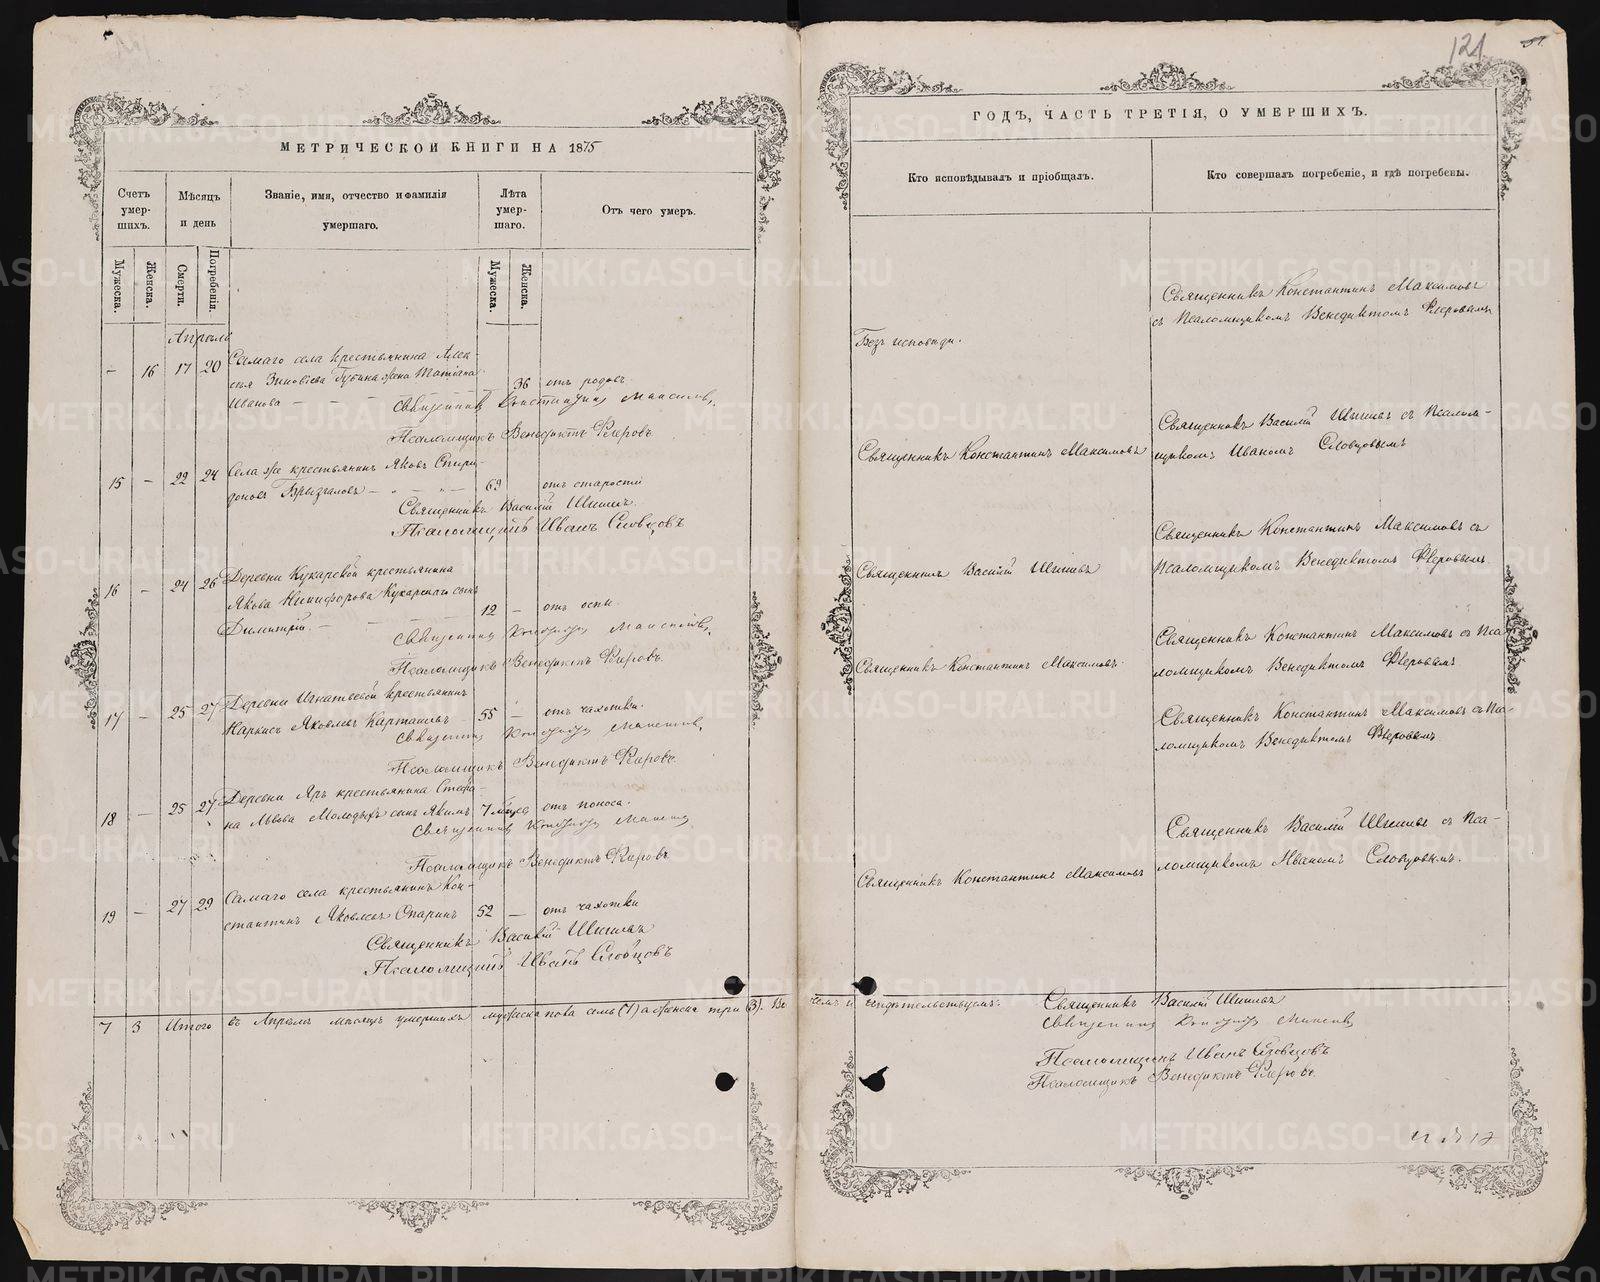 121
МЕТРИЧЕСКОЙ КНИГИ НА 1875
ГОДЪ, ЧАСТЬ ТРЕТІЯ, О УМЕРШИХЪ.
Счетъ умер-шихъ.
Мѣсяцъ и день
Званіе, имя, отчество и фамилія
умершаго.
Лѣта умер-шаго.
Отъ чего умеръ.
Мужеска.
Женска.
Смерти.
Погребенія.
Мужеска.
Женска.
Апрѣля
– 16 17 20 Самаго села крестьянина Алек-
сѣя Зиновіева Губина жена Татіана
Иванова – – – 36 отъ родовъ.
Священникъ Константинъ Максимовъ.
Псаломщикъ Венедиктъ Флеровъ.
15 – 22 24 Села же крестьянинъ Яковъ Спири-
доновъ Брызгаловъ – 69 отъ старости
Священникъ Василій Шишевъ
Псаломщикъ Иванъ Словцовъ
16 – 24 26 Деревни Кукарской крестьянина
Якова Никифорова Кукарскаго сынъ
Димитрій. – 12 – отъ оспы.
Священникъ Константинъ Максимовъ.
Псаломщикъ Венедиктъ Флеровъ.
17 – 25 27 Деревни Игнатьевой крестьянинъ
Наркисъ Яковлевъ 55 – отъ чахотки.
Священникъ Константинъ Максимовъ.
Псаломщикъ Венедиктъ Флеровъ.
18 – 25 27 Деревни Яръ крестьянина Стефа-
на Львова Молодыхъ сынъ Якимъ 7 мѣсяц отъ поноса.
Священникъ Константинъ Максимовъ
Псаломщикъ Венедиктъ Флеровъ.
19 – 27 29 Самаго села крестьянинъ Кон-
стантинъ Яковлевъ Опаринъ 52 – отъ чахотки
Священникъ Василій Шишевъ
Псаломщикъ Иванъ Словцовъ
7 3 Итого въ Апрѣлѣ мѣсяцѣ умершихъ мужеска пола семь (7) а женска три (3). Въ
Кто исповѣдывалъ и пріобщалъ.
Кто совершалъ погребеніе, и гдѣ погребены.
Безъ исповѣди.
Священникъ Константинъ Максимовъ
съ Псаломщикомъ Венедиктомъ Флеровымъ.
Священникъ Константинъ Максимовъ
Священникъ Василій Шишевъ съ Псалом-
щикомъ Иваномъ Словцовымъ
Священникъ Василій Шишевъ
Священникъ Константинъ Максимовъ съ
Псаломщикомъ Венедиктомъ Флеровымъ.
Священникъ Константинъ Максимовъ.
Священникъ Константинъ Максимовъ съ Пса-
ломщикомъ Венедиктомъ Флеровымъ
Священникъ Константинъ Максимовъ съ Пса-
ломщикомъ Венедиктомъ Флеровымъ
Священникъ Константинъ Максимовъ
Священникъ Василій Шишевъ съ Пса-
ломщикомъ Иваномъ Словцовымъ.
чемъ и свидѣтельствуемъ: Священникъ Василій Шишевъ
Священникъ Константинъ Максимовъ
Псаломщикъ Иванъ Словцовъ
Псаломщикъ Венедиктъ Флеровъ.
METRIKI.GASO-URAL.RU